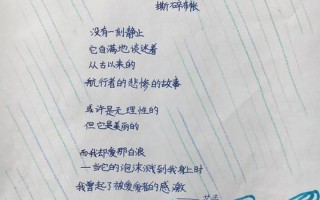 撕碎船帐
没有一刻静止
它自满地谈述着
从古以来的
航行者的悲惨的故事
或许是无理性的
但它是美丽的
而我却爱那白浪
——当它的泡沫溅到我身上时
我曾起了被爱者的感激
——艾青